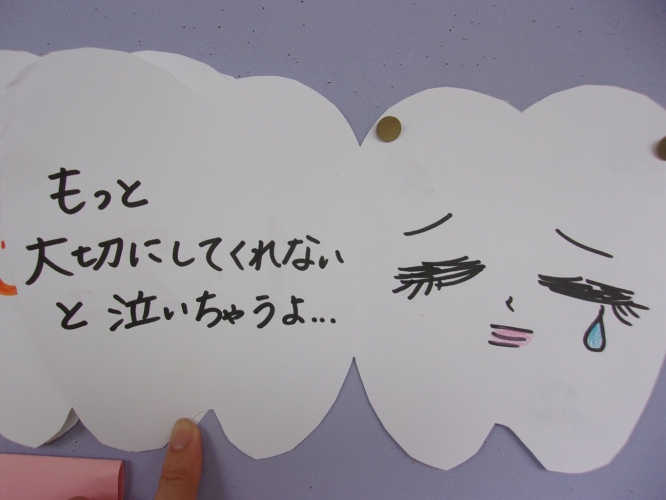 もっと
大切にしてくれない
と泣いちゃうよ...